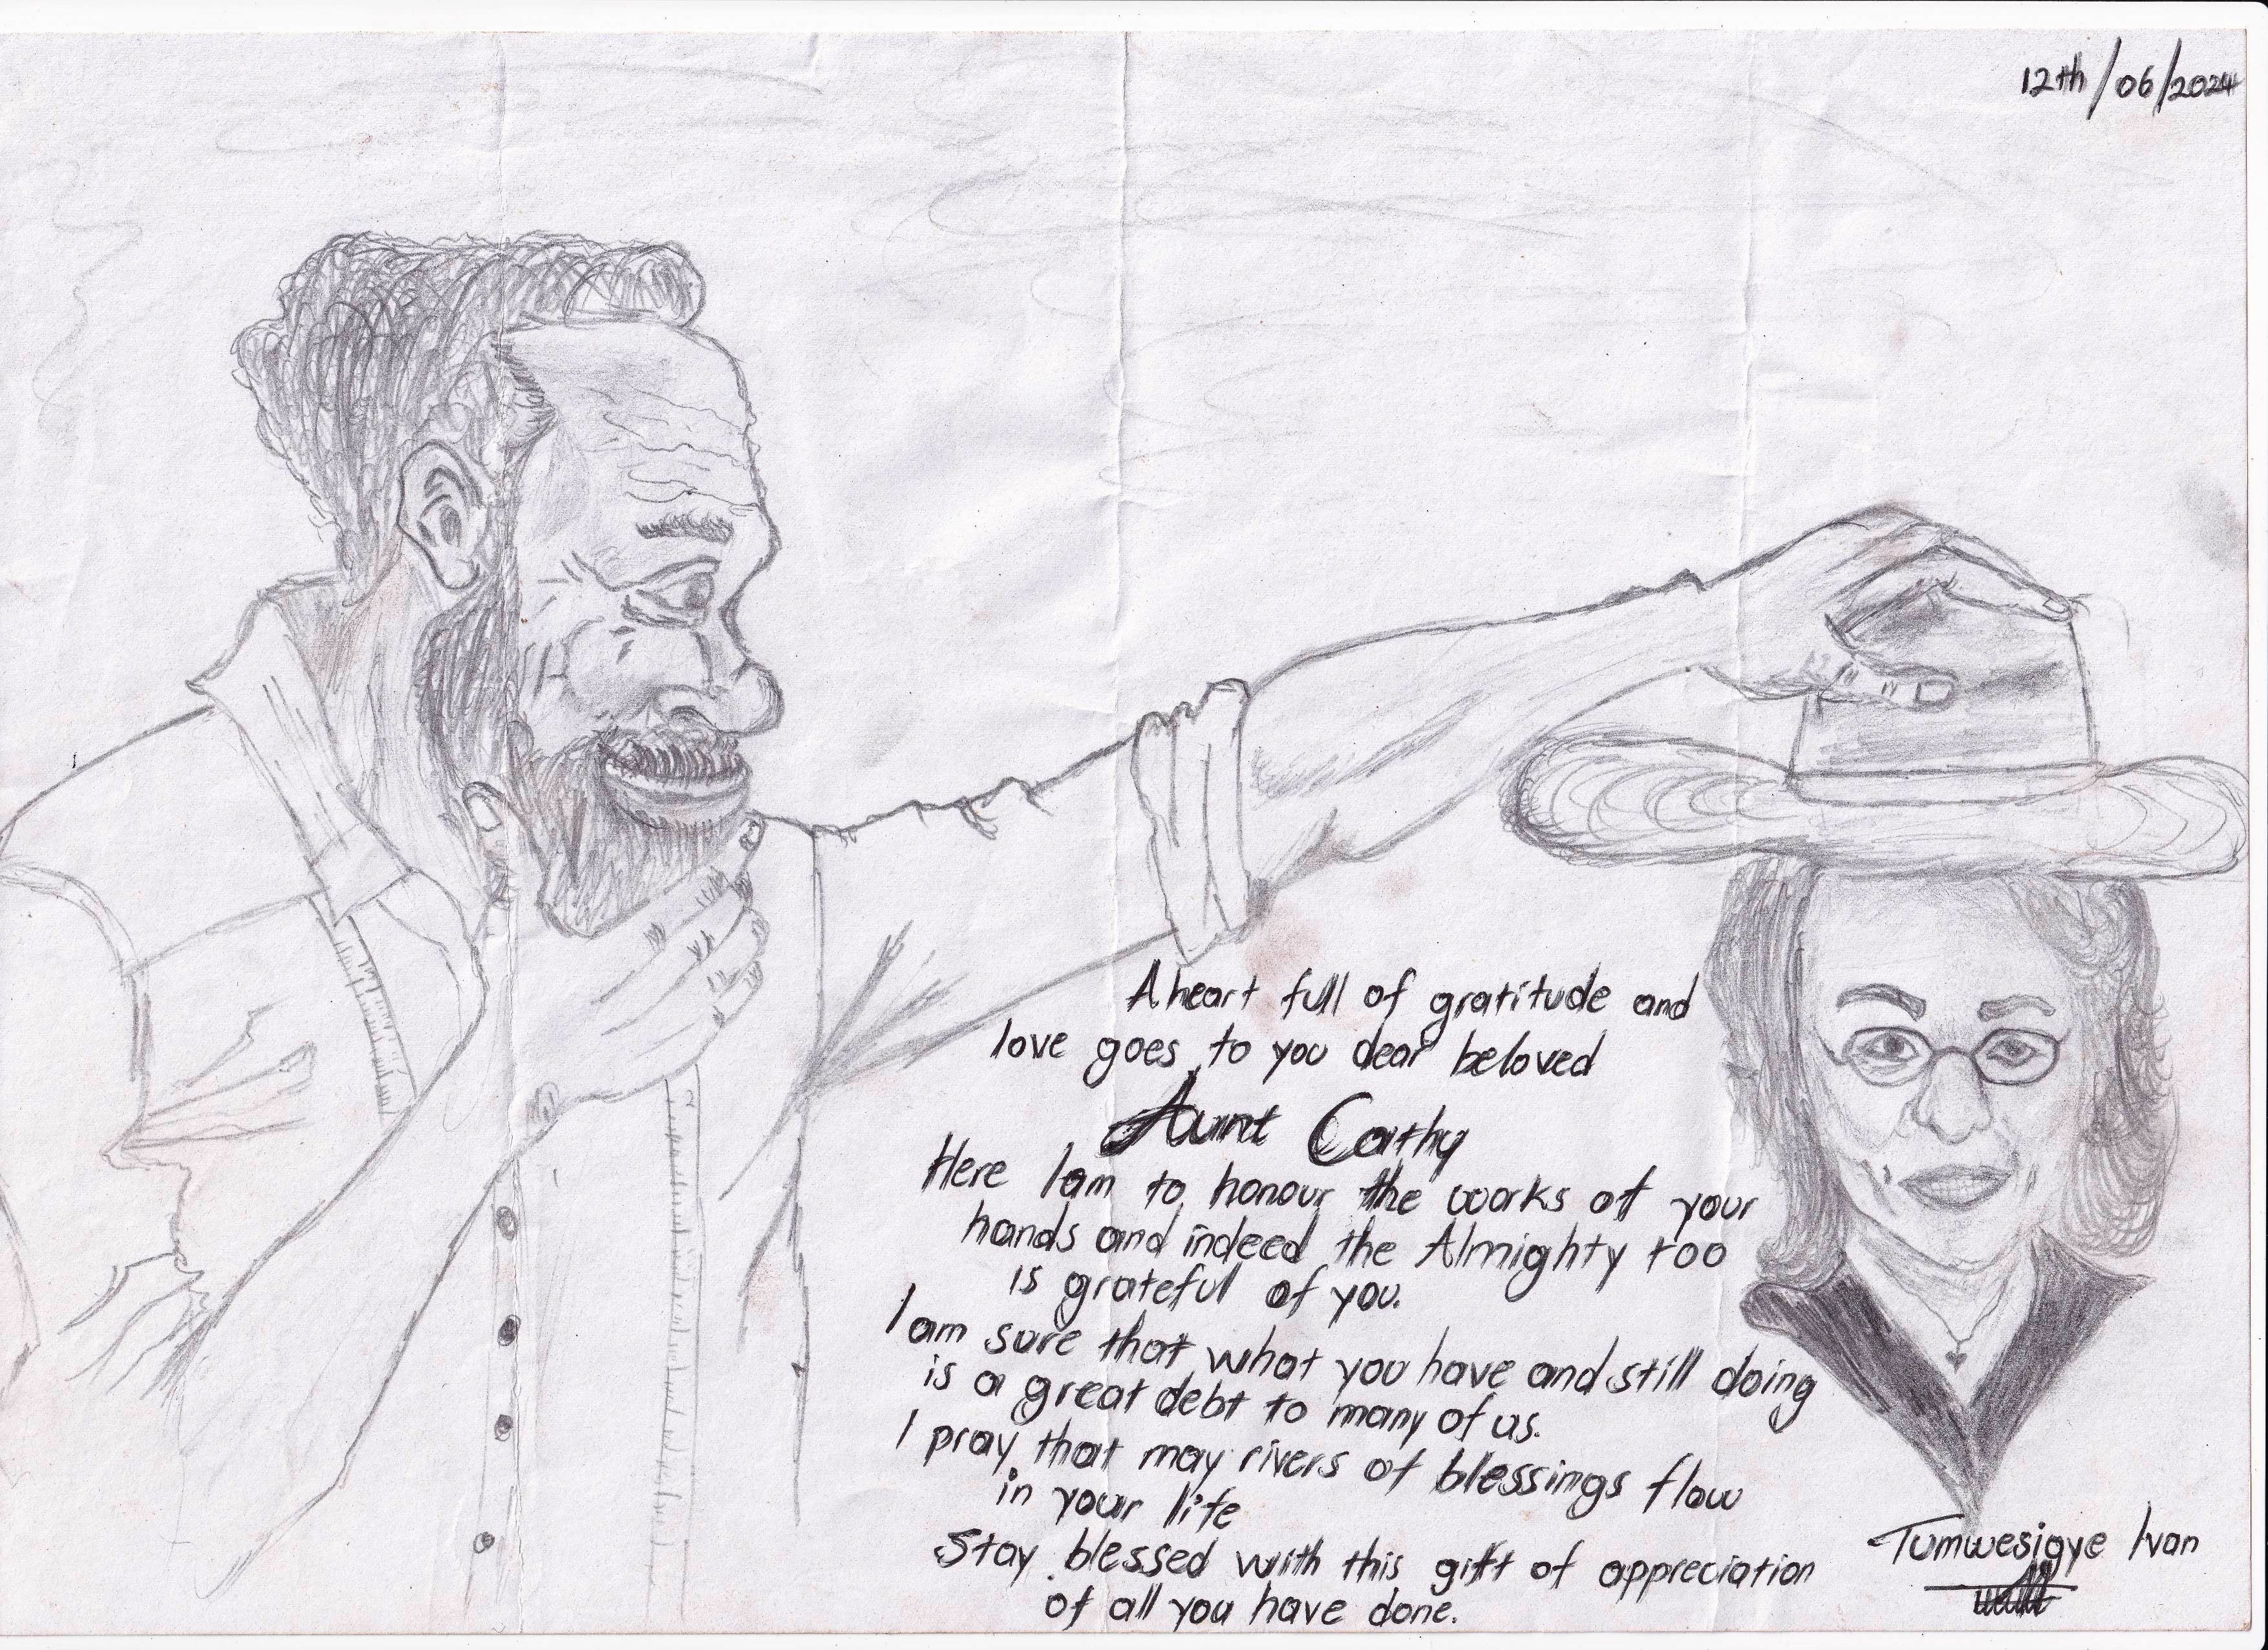 12th/06/2024
A heart full of gratitude and
love goes to you dear beloved
Aunt Cathy
Here I am to honour the works of your
hands and indeed the Almighty too
is grateful of you.
I am sure that what you have and still doing
is a great debt to many of us.
I pray that may rivers of blessings flow
in your life
Stay blessed with this gift of appreciation
of all you have done.
Tumwesigye Ivan